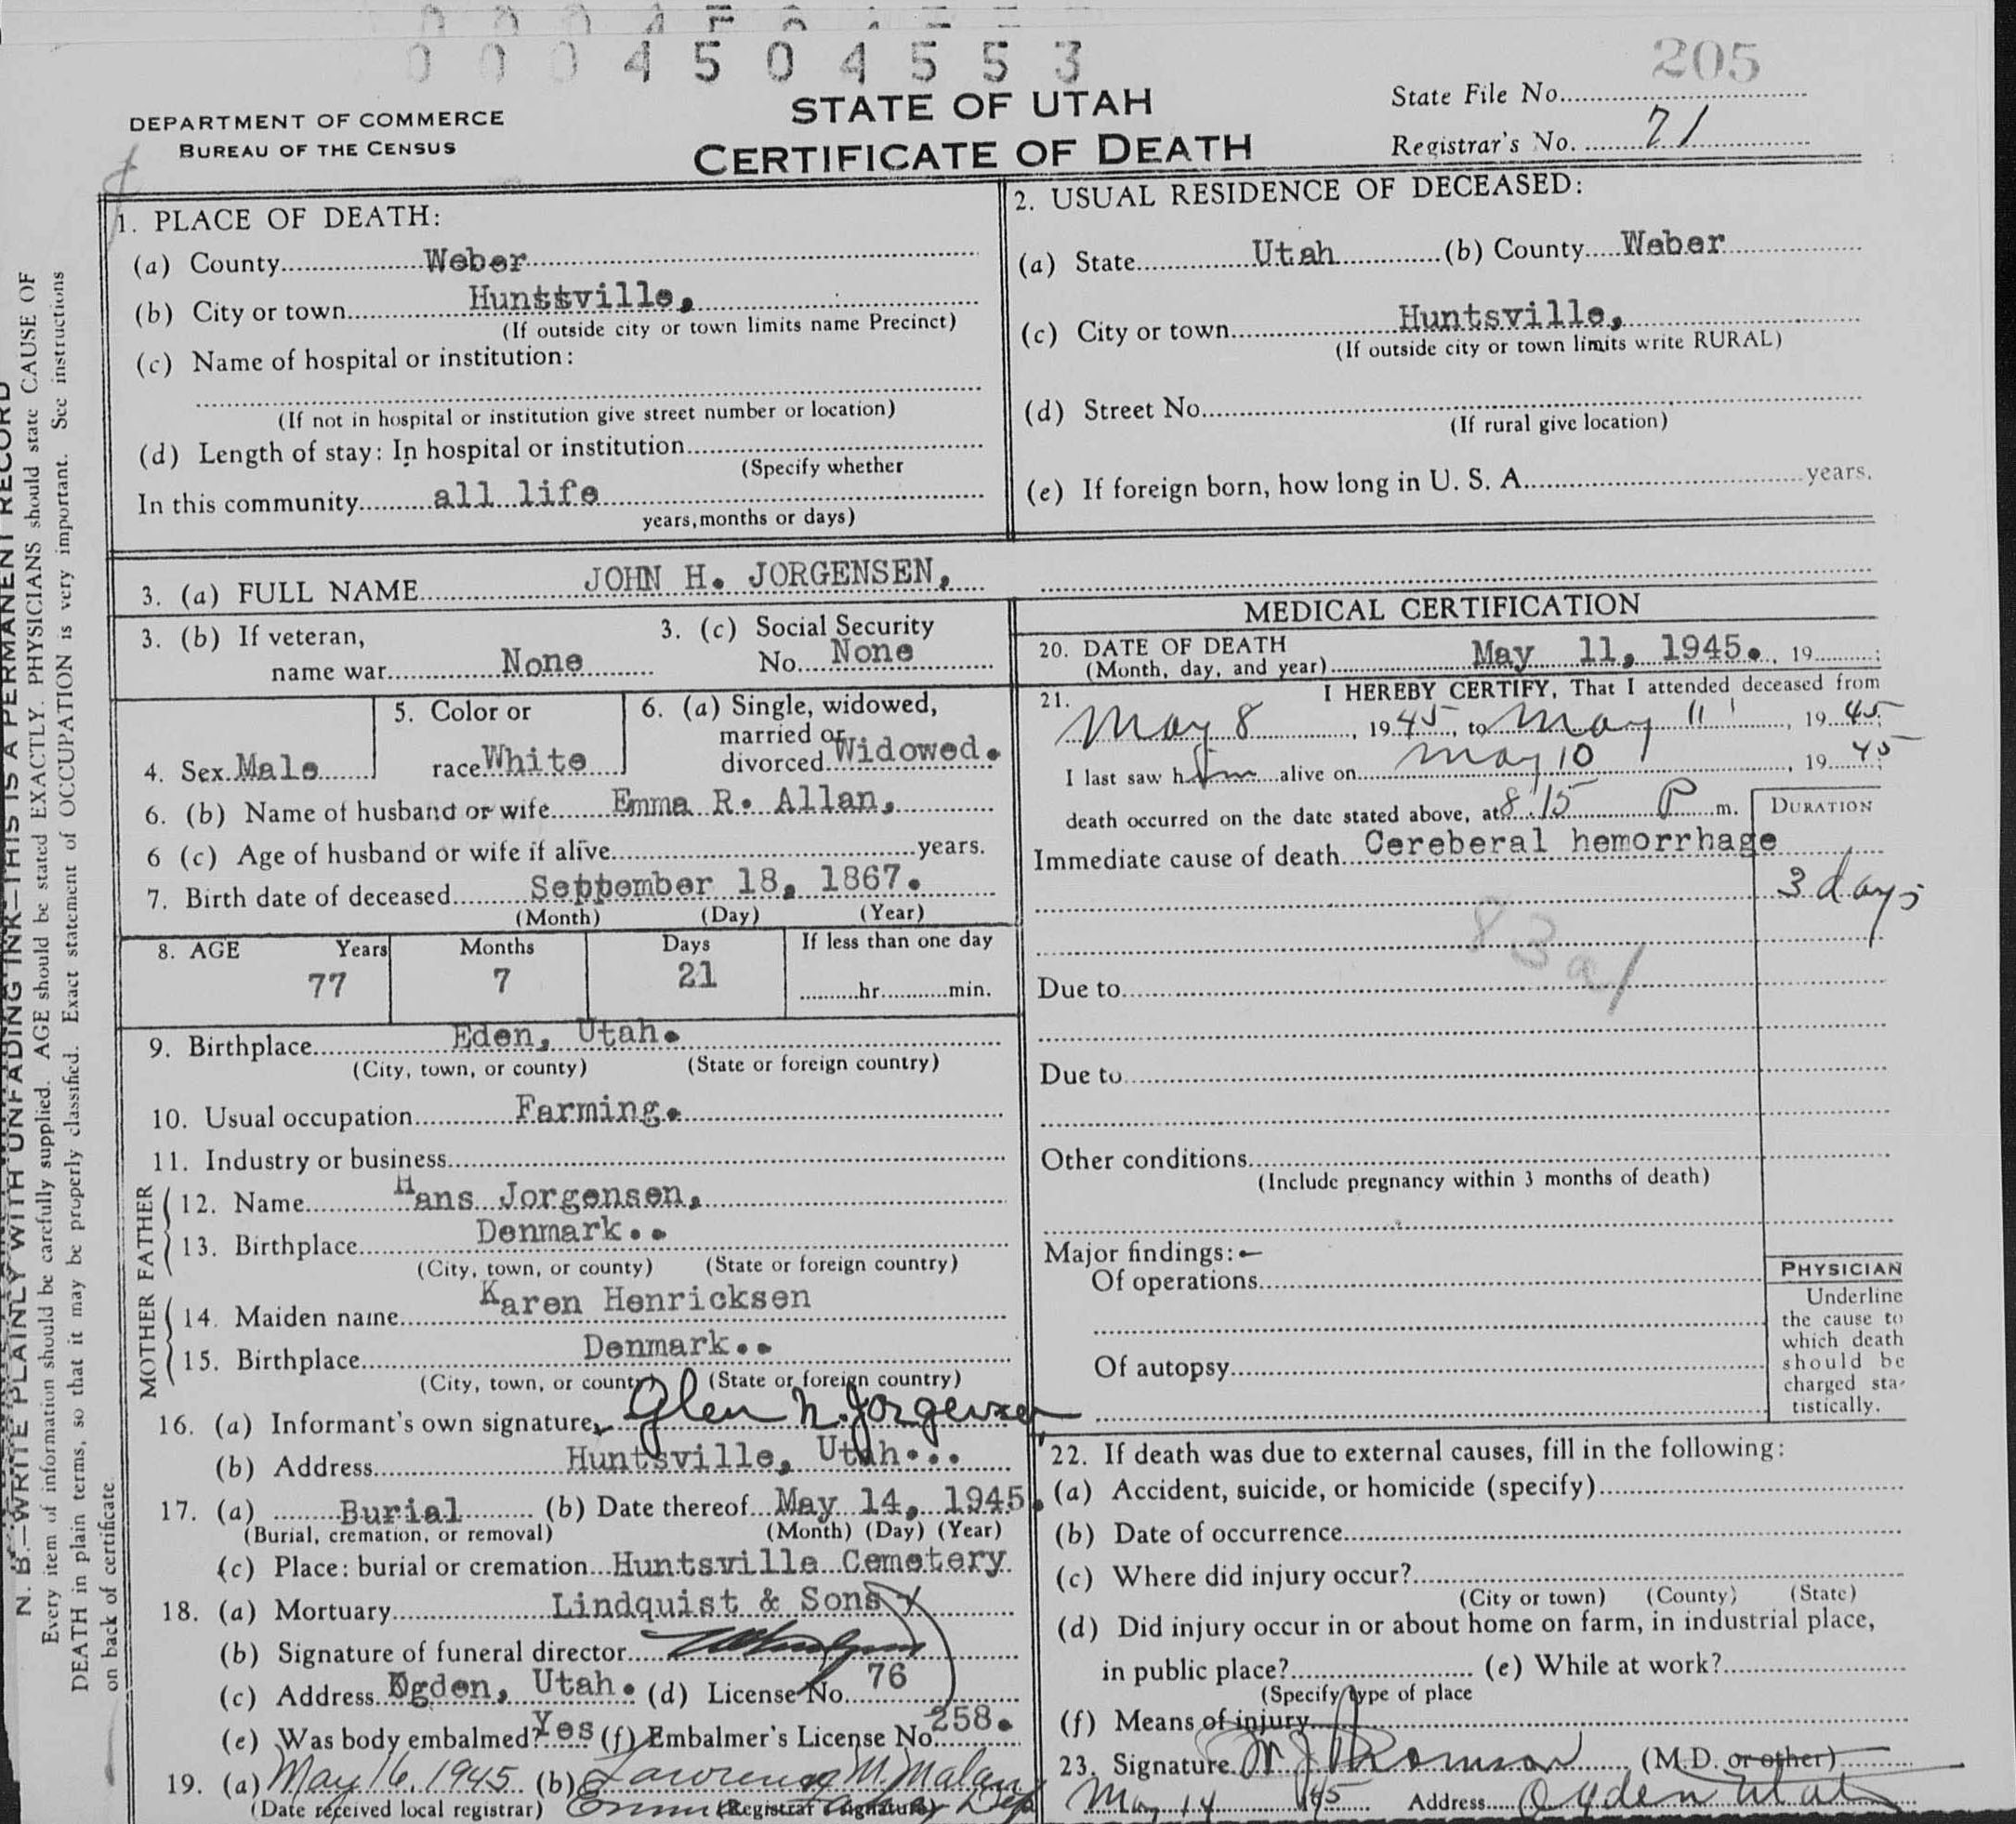 0 0 0 4 5 0 4 5 5 3
205
DEPARTMENT OF COMMERCE
BUREAU OF THE CENSUS
STATE OF UTAH
CERTIFICATE OF DEATH
State File No.
Registrar's No. 71
1. PLACE OF DEATH:
(a) County Weber
(b) City or town Huntsville,
(If outside city or town limits name Precinct)
(c) Name of hospital or institution:
(If not in hospital or institution give street number or location)
(d) Length of stay: In hospital or institution
(Specify whether
In this community all life
years, months or days)
2. USUAL RESIDENCE OF DECEASED:
(a) State Utah (b) County Weber
(c) City or town Huntsville,
(If outside city or town limits write RURAL)
(d) Street No.
(If rural give location)
(e) If foreign born, how long in U. S. A. years.
3. (a) FULL NAME JOHN H. JORGENSEN,
3. (b) If veteran,
name war None
3. (c) Social Security
No. None
4. Sex Male
5. Color or
race White
6. (a) Single, widowed,
married or
divorced Widowed.
6. (b) Name of husband or wife Emma R. Allan,
6 (c) Age of husband or wife if alive years.
7. Birth date of deceased September 18, 1867.
(Month) (Day) (Year)
8. AGE Years Months Days If less than one day
77 7 21 hr. min.
9. Birthplace Eden, Utah.
(City, town, or county) (State or foreign country)
10. Usual occupation Farming.
11. Industry or business
FATHER
12. Name Hans Jorgensen,
13. Birthplace Denmark..
(City, town, or county) (State or foreign country)
MOTHER
14. Maiden name Karen Henricksen
15. Birthplace Denmark..
(City, town, or county) (State or foreign country)
16. (a) Informant's own signature Glen N. Jorgensen
(b) Address Huntsville, Utah...
17. (a) Burial (b) Date thereof May 14, 1945.
(Burial, cremation, or removal) (Month) (Day) (Year)
(c) Place: burial or cremation Huntsville Cemetery
18. (a) Mortuary Lindquist & Sons
(b) Signature of funeral director
(c) Address Ogden, Utah. (d) License No. 76
(e) Was body embalmed? Yes (f) Embalmer's License No. 258.
19. (a) May 16, 1945 (b) Lawrence M. Malan
(Date received local registrar) (Registrar's signature) Dep
MEDICAL CERTIFICATION
20. DATE OF DEATH
(Month, day, and year) May 11, 1945., 19 ;
21. I HEREBY CERTIFY, That I attended deceased from
May 8, 1945, to May 11, 1945;
I last saw him alive on May 10, 1945;
death occurred on the date stated above, at 8:15 P m.
DURATION
Immediate cause of death Cereberal hemorrhage
3 days
83a/
Due to
Due to
Other conditions
(Include pregnancy within 3 months of death)
Major findings:
Of operations
Of autopsy
PHYSICIAN
Underline
the cause to
which death
should be
charged sta-
tistically.
22. If death was due to external causes, fill in the following:
(a) Accident, suicide, or homicide (specify)
(b) Date of occurrence
(c) Where did injury occur?
(City or town) (County) (State)
(d) Did injury occur in or about home on farm, in industrial place,
in public place? (e) While at work?
(Specify type of place
(f) Means of injury
23. Signature Thomson (M.D. or other)
May 14 1945 Address Ogden Utah
N. B.—WRITE PLAINLY WITH UNFADING INK—THIS IS A PERMANENT RECORD
Every item of information should be carefully supplied. AGE should be stated EXACTLY. PHYSICIANS should state CAUSE OF
DEATH in plain terms, so that it may be properly classified. Exact statement of OCCUPATION is very important. See instructions
on back of certificate.